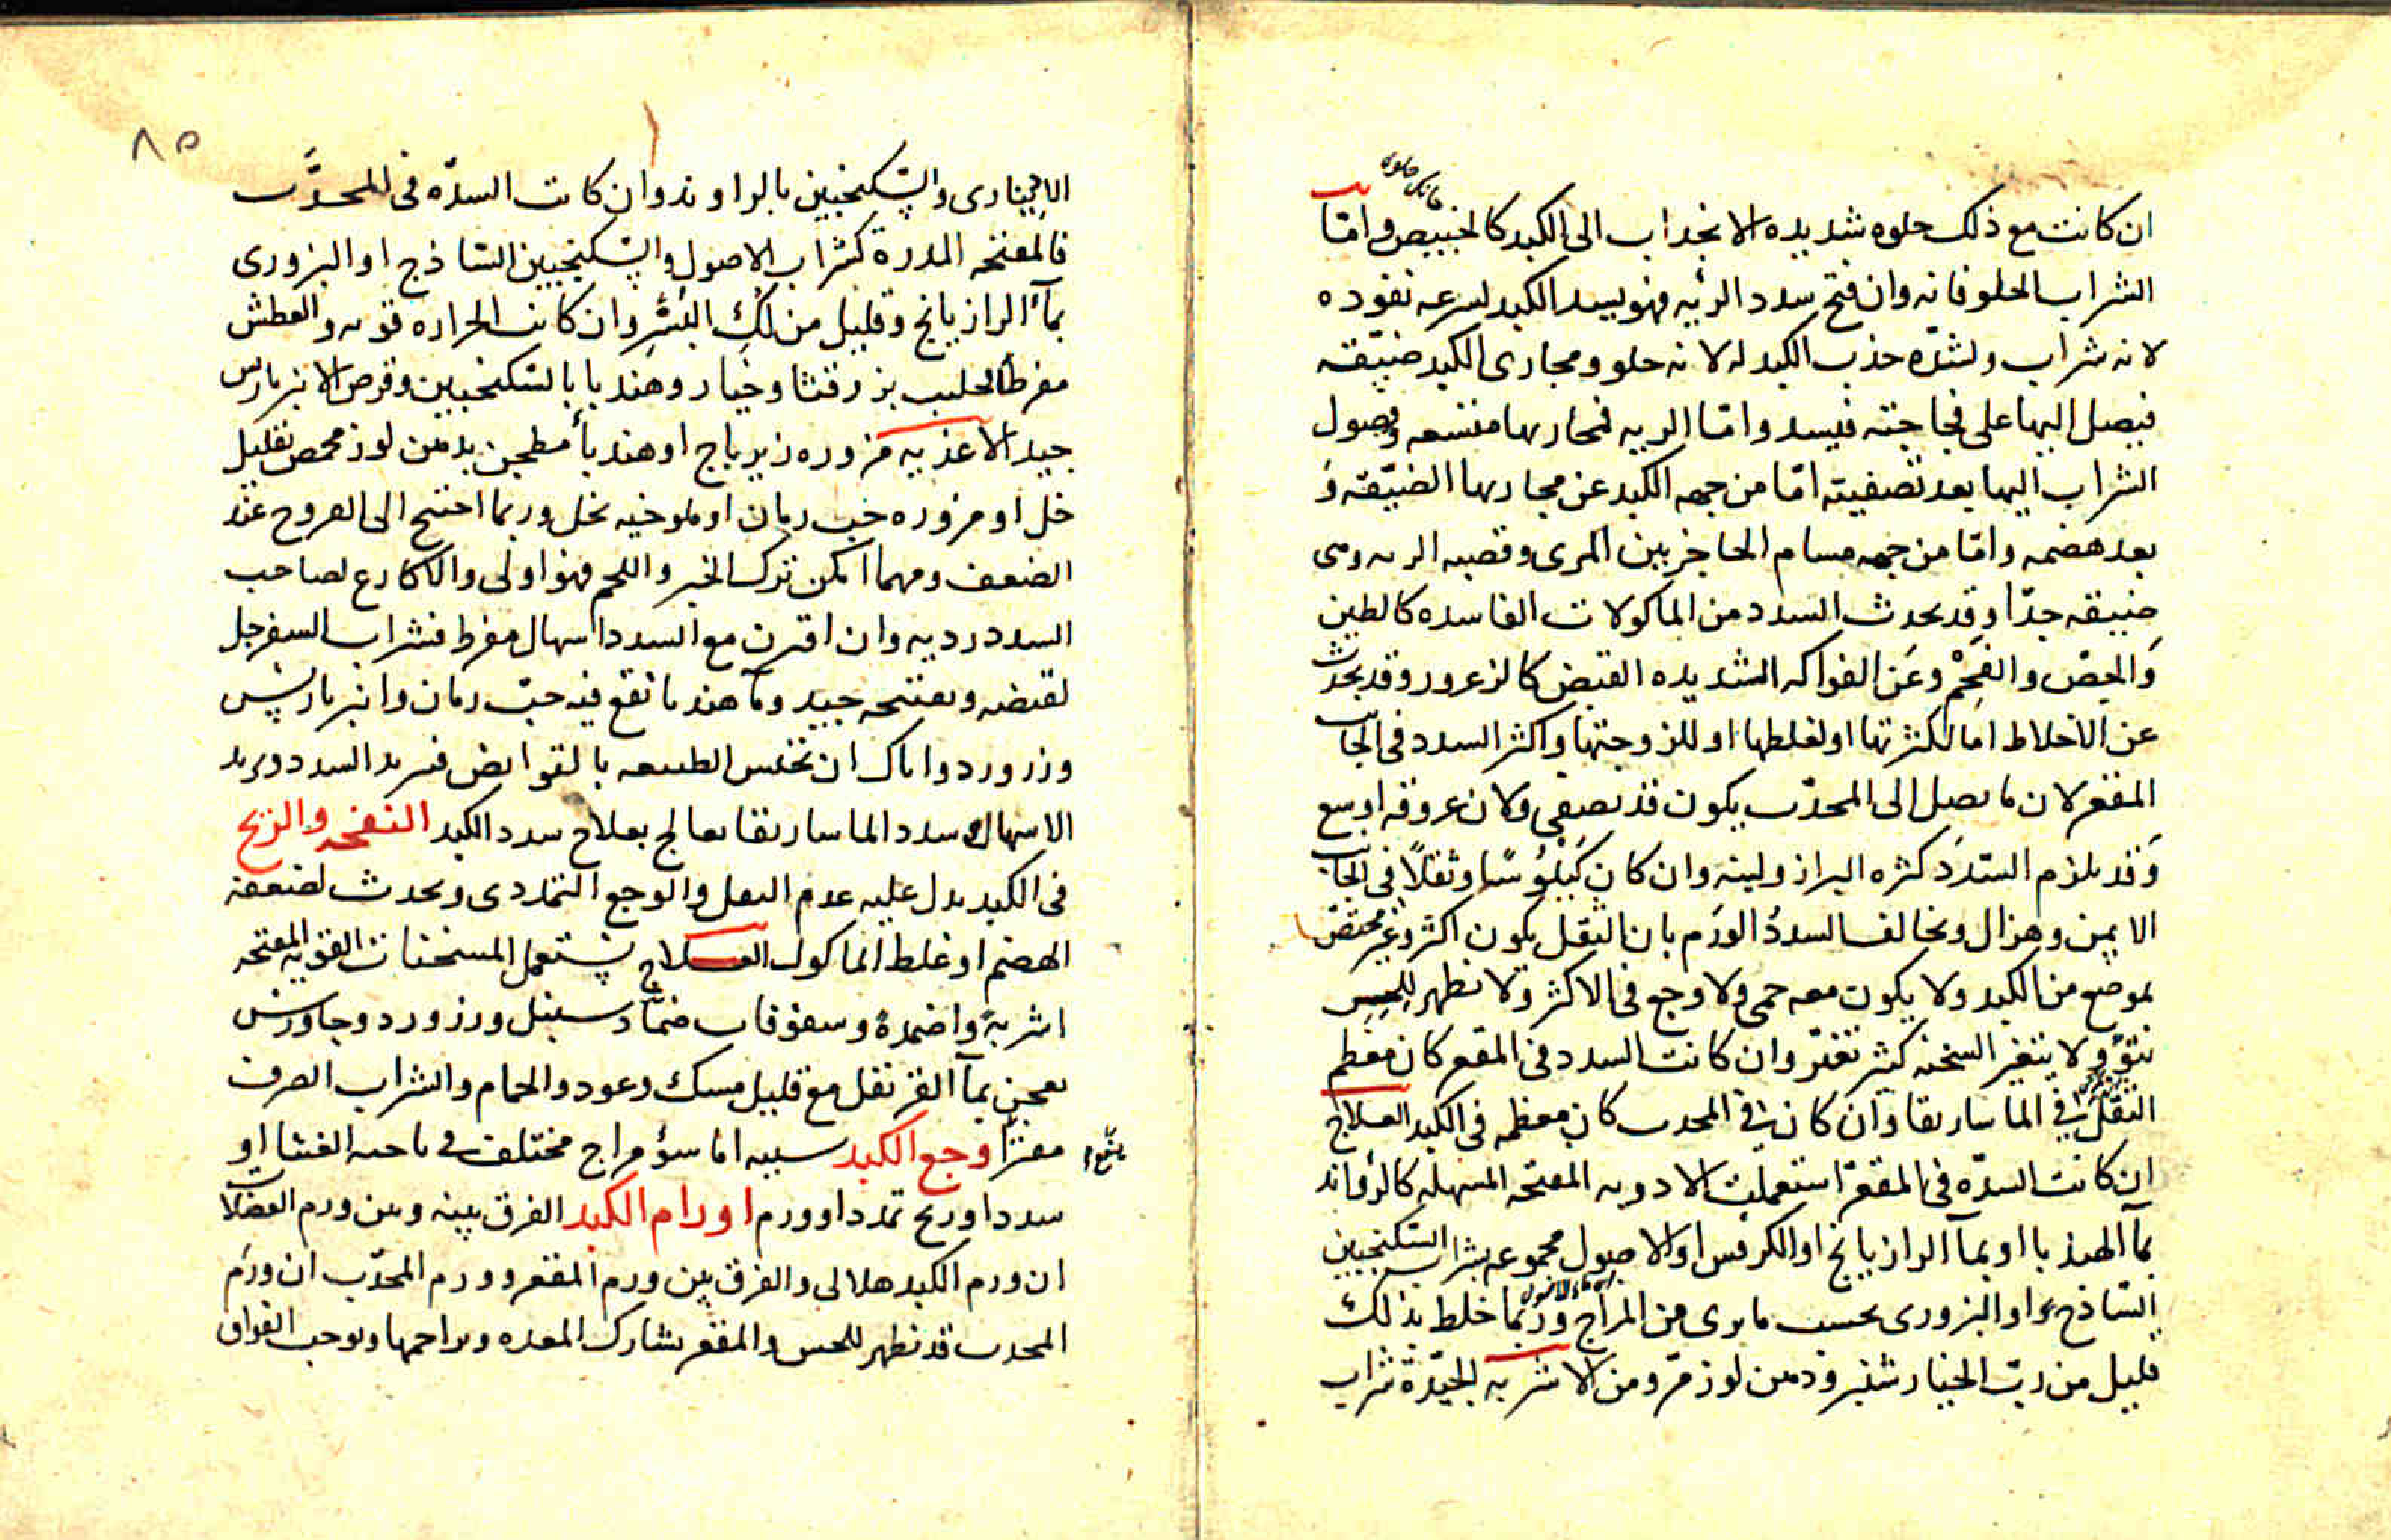 ان كانت مع ذلك حلوه شديده الانجداب الى الكبد كالخبيص واما
الشراب الحلو فانه وان فتح سدد الرئيه فهو يسد الكبد لسرعه نفوده
لانه شراب ولشده جذب الكبد له لانه حلو ومجارى الكبد ضيقه
فيصل اليها على فجاجته فيسد واما الريه فمجاريها متسعه وصول
الشراب اليها بعد تصفيته اما من جهه الكبد عن مجاريها الضيقه و
بعد هضمه واما من جهه مسام الحاجز بين المرى وقصبه الريه وهى
ضيقه جدا وقد يحدث السدد من الماكولات الفاسده كالطين
والجص والفحم وعن الفواكه الشديده القبض كالزعرور وقد يحدث
عن الاخلاط اما لكثرتها او لغلظها او للزوجتها واكثر السدد فى الجانب
المقعر لان ما يصل الى المحدب يكون قد تصفى ولان عروقه اوسع
وقد يلزم السدد كثره البراز ولينه وان كان كيلوسا وثقلا فى الجانب
الايمن وهزال ويخالف السدد الورم بان الثقل يكون اكثر وغير مختص
بموضع من الكبد ولا يكون معه حمى ولا وجع فى الاكثر ولا يظهر للحس
نتو ولا يتغير السحنه كثير تغير وان كانت السدد فى المقعر كان معظم
الثقل فى الماساريقا وان كان فى المحدب كان معظمه فى الكبد العلاج
ان كانت السده فى المقعر استعملت الادويه المفتحه المسهله كالراوند
بمآ الهندبا او بمآ الرازيانج او الكرفس او الاصول مجموعه بشراب السكنجبين
الساذج او البزورى بحسب ما يرى من المزاج وربما خلط بذلك
قليل من رب الخيار شنبر ودهن لوز مر ومن الاشربه الجيده شراب
٨٥
الدينارى والسكنجبين بالراوند وان كانت السده فى المحدب
فالمفتحه المدرة كشراب الاصول والسكنجبين الساذج او البزورى
بمآ الرازيانج وقليل من لك البسر وان كانت الحراره قويه والعطش
مفرطا فحليب بزر قثا وخيار وهندبا بالسكنجبين وقرص الانبرباريس
جيد الاغذيه مزوره زيرباج او هندبا مطجن بدهن لوز محمص بقليل
خل او مزوره حب رمان او ملوخيه بخل وربما احتيج الى الفروج عند
الضعف ومهما امكن ترك الخبز واللحم فهو اولى والاكارع لصاحب
السدد رديه وان اقترن مع السدد اسهال مفرط فشراب السفرجل
لقبضه وتفتيحه جيد ومآ هندبا نقع فيه حب رمان وانبرباريس
وزر ورد واياك ان تحبس الطبيعه بالقوابض فيزيد السدد ويزيد
الاسهال وسدد الماساريقا يعالج بعلاج سدد الكبد النفخه والريح
فى الكبد يدل عليه عدم الثقل والوجع التمددى ويحدث لضعف
الهضم او غلظ الماكول العلاج يستعمل المسخنات القويه المفتحه
اشربة واضمدة وسفوفات ضماد سنبل وزر ورد وجاورس
يعجن بمآ القرنفل مع قليل مسك وعود والحمام والشراب الصرف
معزرا وجع الكبد سببه اما سؤ مزاج مختلف فى ناحيه الغشا او
سدد او ريح تمدد او ورم اورام الكبد الفرق بينه وبين ورم العضلات
ان ورم الكبد هلالى والفرق بين ورم المقعر وورم المحدب ان ورم
المحدب قد يظهر للحس والمقعر يشارك المعده ويزاحمها ويوجب الفواق